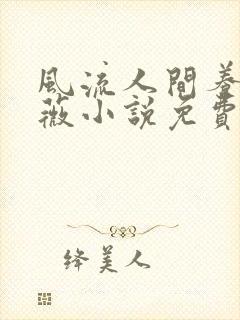 風流人間蓉
薇小說免費
絳美人